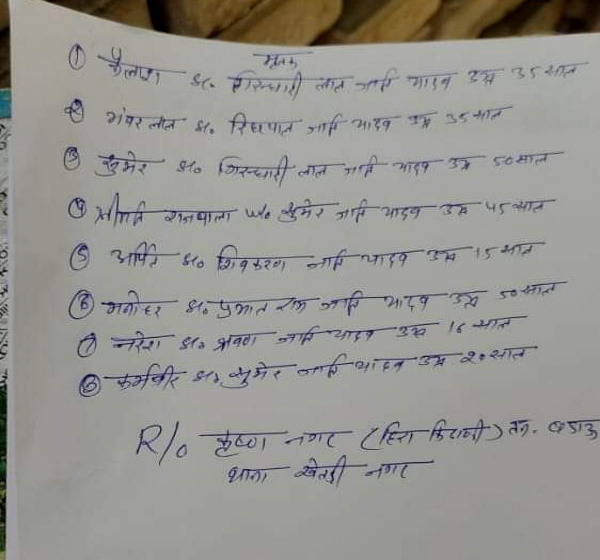 मृतक
① कैलाश s/o गिरधारी लाल जाति यादव उम्र 35 साल
② भंवर लाल s/o रिछपाल जाति यादव उम्र 35 साल
③ सुमेर s/o गिरधारी लाल जाति यादव उम्र 50 साल
④ श्रीमति राजबाला w/o सुमेर जाति यादव उम्र 45 साल
⑤ अर्पित s/o शिवकरण जाति यादव उम्र 15 साल
⑥ मनोहर s/o प्रभात राम जाति यादव उम्र 50 साल
⑦ नरेश s/o श्रवण जाति यादव उम्र 16 साल
⑧ कर्मवीर s/o सुमेर जाति यादव उम्र 20 साल
R/o कृष्ण नगर ( ) तन.
थाना खेतड़ी नगर